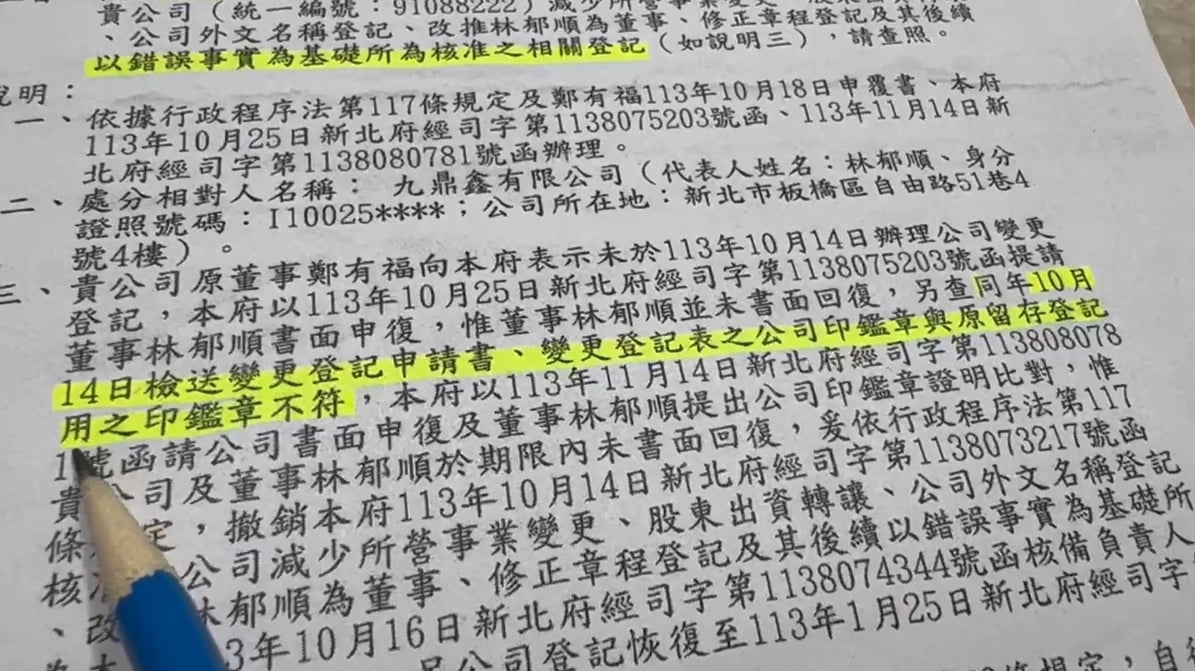 貴公司（統一編號：91088222）減少所營事業變更、股東出資轉讓
、公司外文名稱登記、改推林郁順為董事、修正章程登記及其後續
以錯誤事實為基礎所為核准之相關登記（如說明三），請查照。
說明：
一、依據行政程序法第117條規定及鄭有福113年10月18日申覆書、本府
113年10月25日新北府經司字第1138075203號函、113年11月14日新
北府經司字第1138080781號函辦理。
二、處分相對人名稱：九鼎鑫有限公司（代表人姓名：林郁順、身分
證照號碼：I10025****；公司所在地：新北市板橋區自由路51巷4
號4樓）。
三、貴公司原董事鄭有福向本府表示未於113年10月14日辦理公司變更
登記，本府以113年10月25日新北府經司字第1138075203號函提請
董事林郁順書面申復，惟董事林郁順並未書面回復，另查同年10月
14日檢送變更登記申請書、變更登記表之公司印鑑章與原留存登記
用之印鑑章不符，本府以113年11月14日新北府經司字第113808078
1號函請公司書面申復及董事林郁順提出公司印鑑章證明比對，惟
貴公司及董事林郁順於期限內未書面回復，爰依行政程序法第117
條 定，撤銷本府113年10月14日新北府經司字第1138073217號函
核 公司減少所營事業變更、股東出資轉讓、公司外文名稱登記
、改 林郁順為董事、修正章程登記及其後續以錯誤事實為基礎所
3年10月16日新北府經司字第1138074344號函核備負責人
公司登記恢復至113年1月25日新北府經司字
規定，自